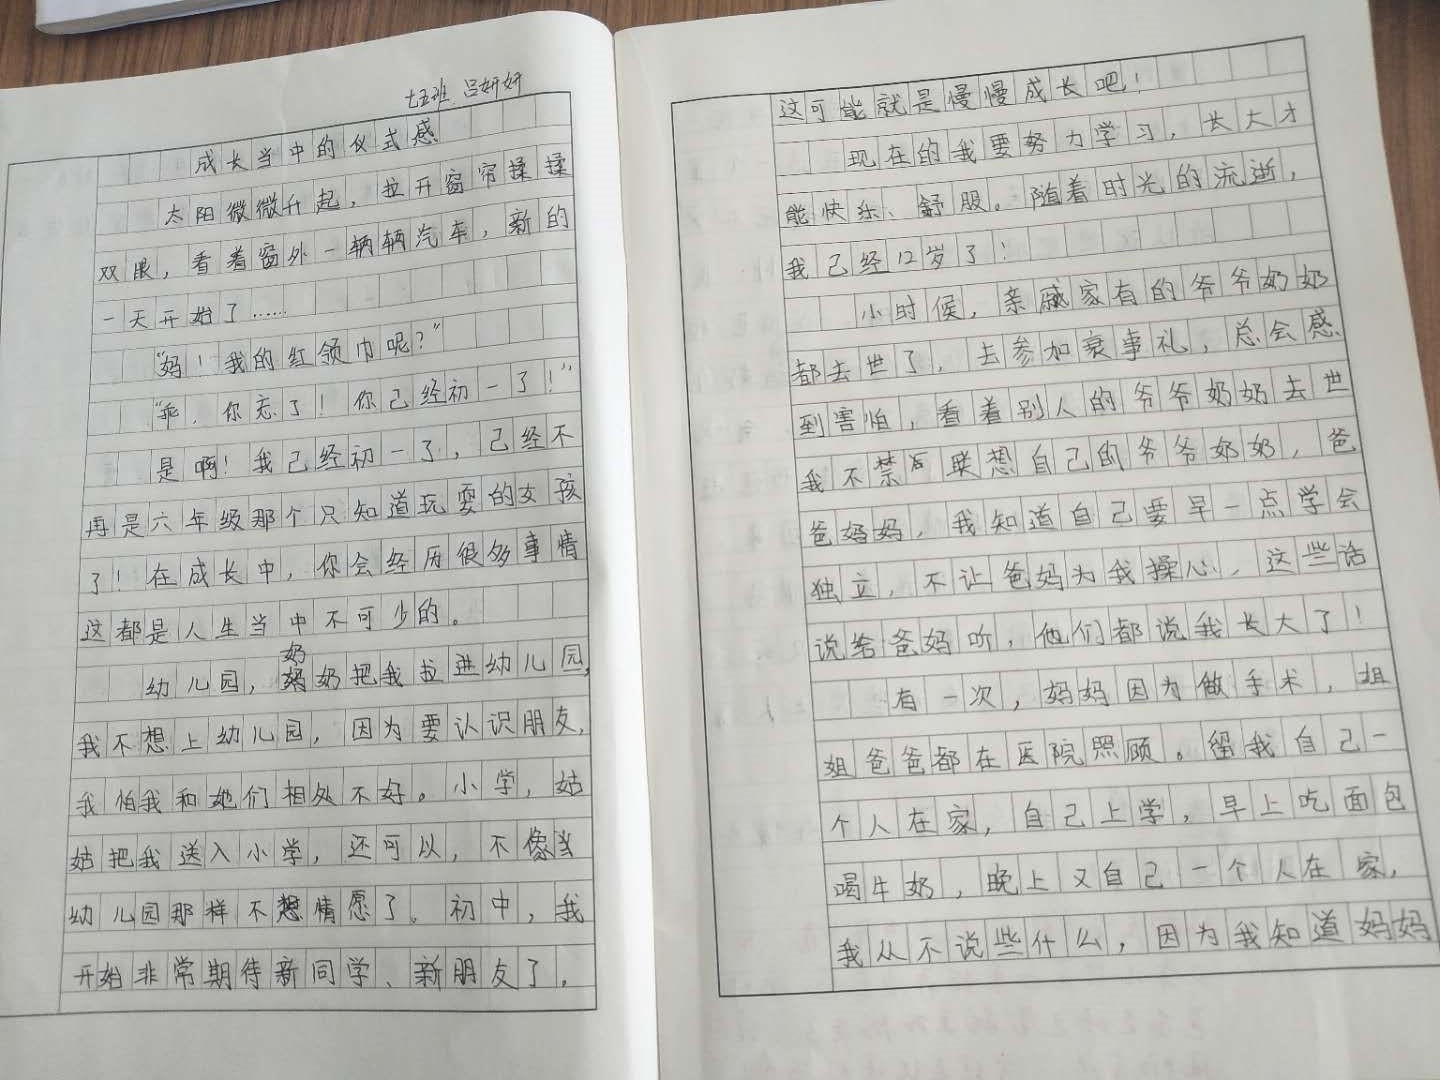 七五班 吕妍妍
成长当中的仪式感
太阳微微升起，拉开窗帘揉揉
双眼，看着窗外一辆辆汽车，新的
一天开始了……
“妈！我的红领巾呢？”
“乖，你忘了！你已经初一了！”
是啊！我已经初一了，已经不
再是六年级那个只知道玩耍的女孩
了！在成长中，你会经历很多事情
这都是人生当中不可少的。
幼儿园，奶奶把我拉进幼儿园，
我不想上幼儿园，因为要认识朋友，
我怕我和她们相处不好。小学，姑
姑把我送入小学，还可以，不像当
幼儿园那样不想情愿了。初中，我
开始非常期待新同学、新朋友了，
这可能就是慢慢成长吧！
现在的我要努力学习，长大才
能快乐、舒服。随着时光的流逝，
我已经12岁了！
小时候，亲戚家有的爷爷奶奶
都去世了，去参加哀事礼，总会感
到害怕，看着别人的爷爷奶奶去世
我不禁联想自己的爷爷奶奶，爸
爸妈妈，我知道自己要早一点学会
独立，不让爸妈为我操心，这些话
说给爸妈听，他们都说我长大了！
有一次，妈妈因为做手术，姐
姐爸爸都在医院照顾。留我自己一
个人在家，自己上学，早上吃面包
喝牛奶，晚上又自己一个人在家，
我从不说些什么，因为我知道妈妈